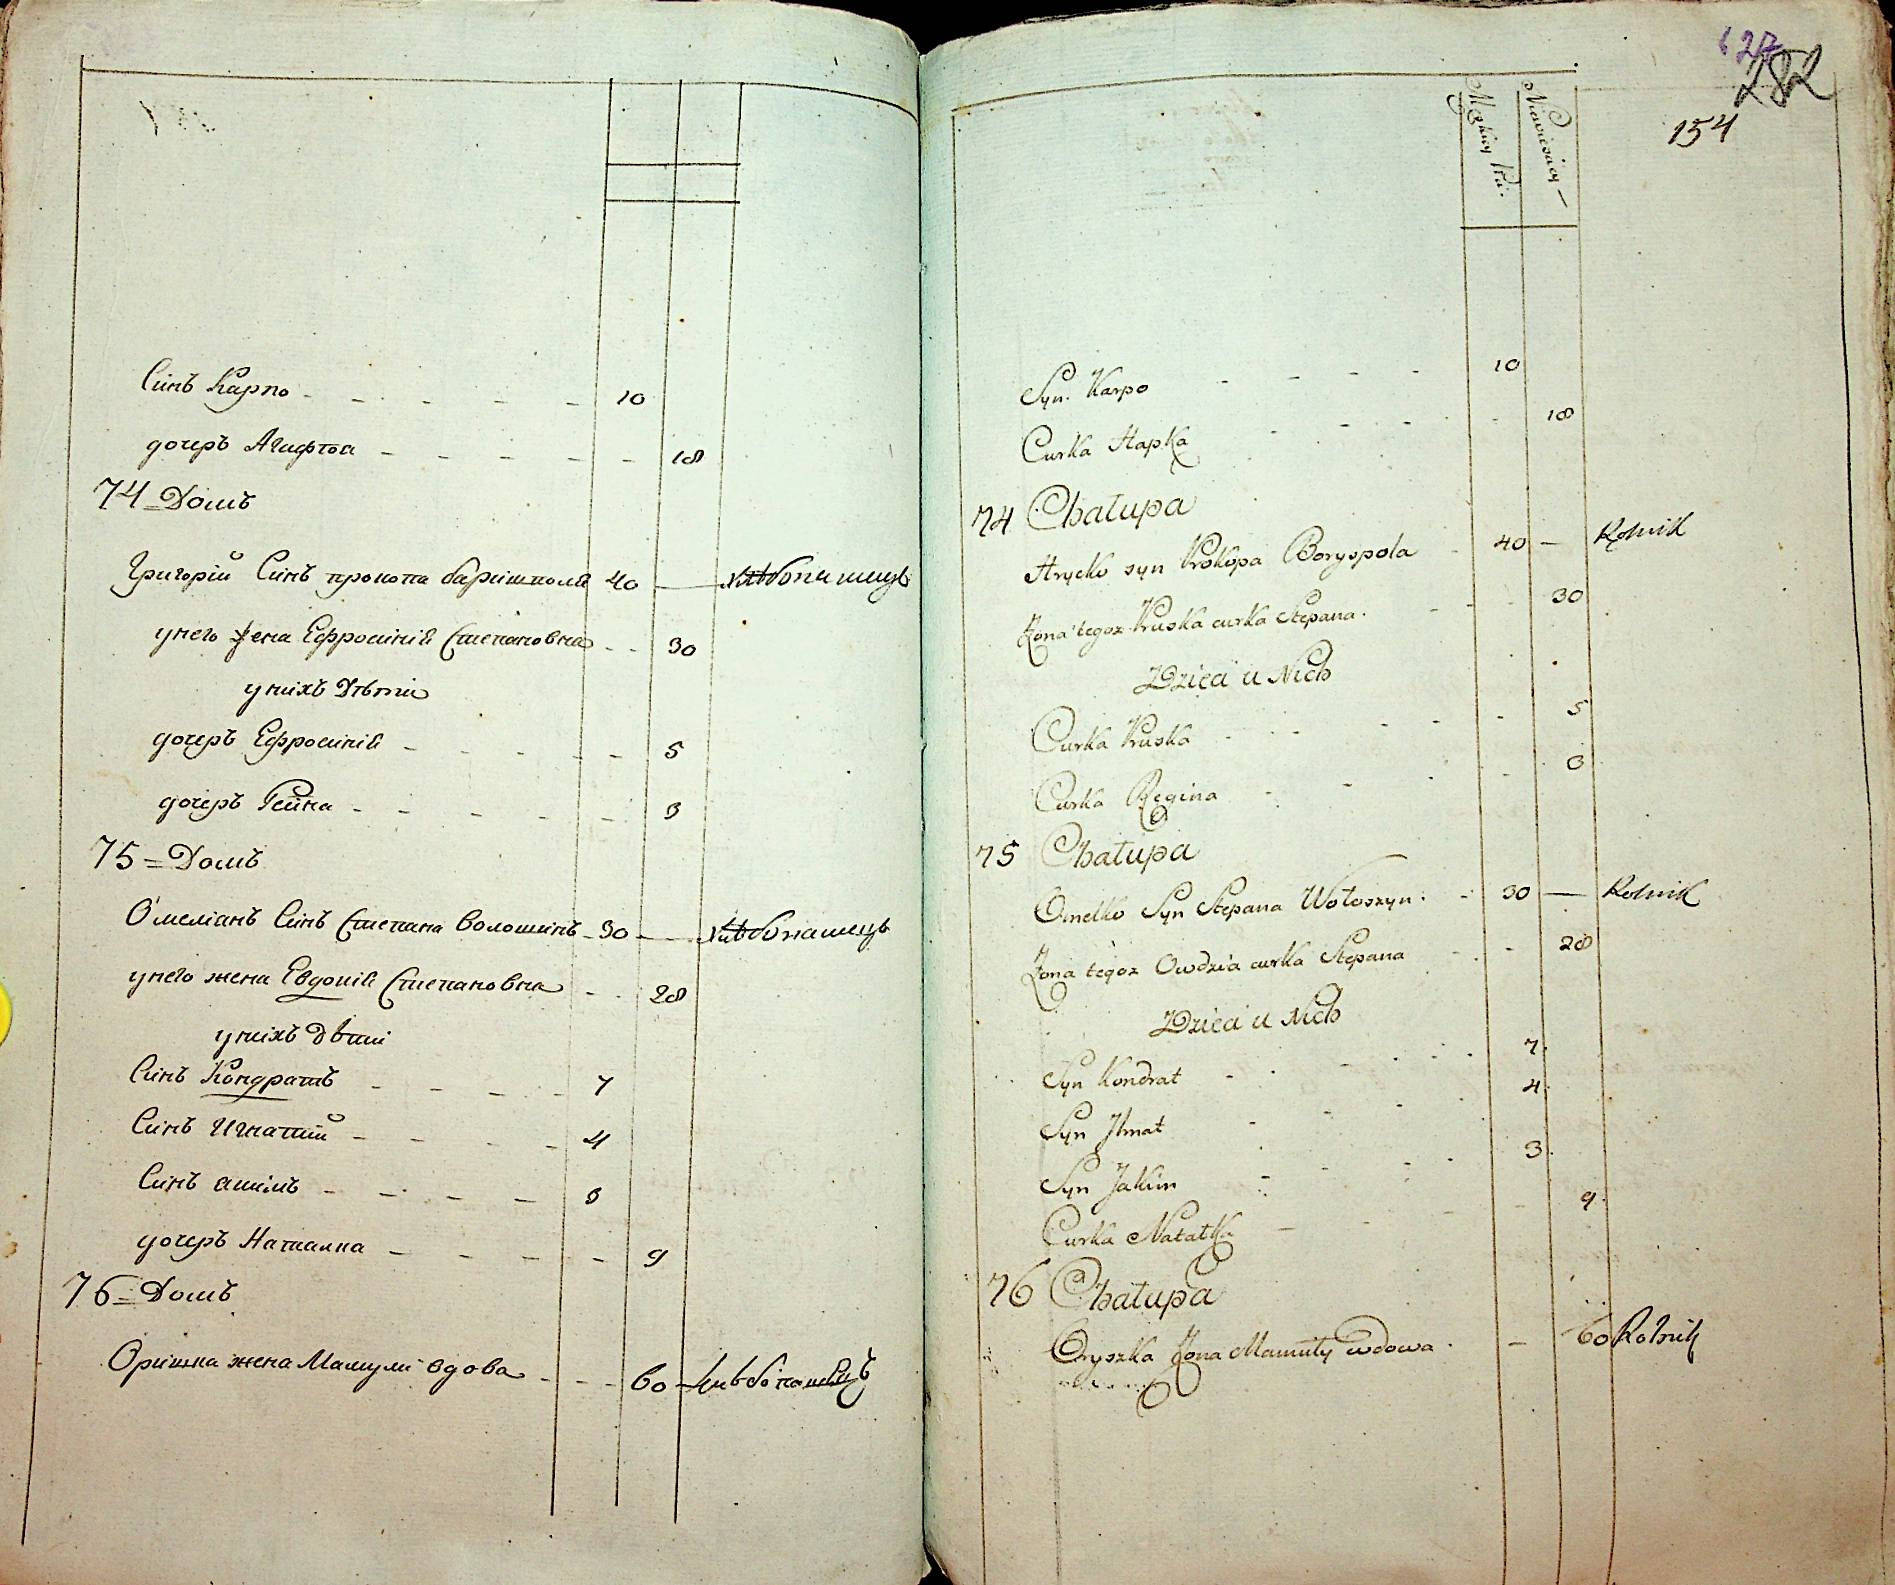 Синъ Карпо 10
дочеръ Агафтоа 18
74 = Домъ
Григорій Синъ прокопа баришполя 40 хлѣбопашецъ
унего жена Ефросинія Степановна 30
унихъ Дѣти
дочеръ Ефросинія 5
дочеръ Гейна 3
75 = Домъ
Омеліанъ Синъ Степана Волошинъ 30 хлѣбопашецъ
унего жена Евдокія Степановна 28
унихъ дѣти
Синъ Кондратъ 7
Синъ Игнатий 4
Синъ акимъ 3
дочеръ Наталка 9
76 = Домъ
Оришка жена Мамули вдова 60 хлѣбопашецъ
627
282
154
Męzkiey Płci
Niewieściey
Syn Karpo 10
Curka Hapka 18
74 Chałupa
Hrycko syn Prokopa Boryspola 40 — Rolnik
Żona tegoz Pruska curka Stepana 30
Dzieci u Nich
Curka Pruska 5
Curka Regina 3
75 Chałupa
Omelko Syn Stepana Wołoszyn 30 — Rolnik
Żona tegoz Owdzia curka Stepana 28
Dzieci u Nich
Syn Kondrat 7
Syn Ihnat 4
Syn Jakim 3
Curka Natałka 9
76 Chałupa
Oryszka Żona Mamuły wdowa — 60 Rolnik